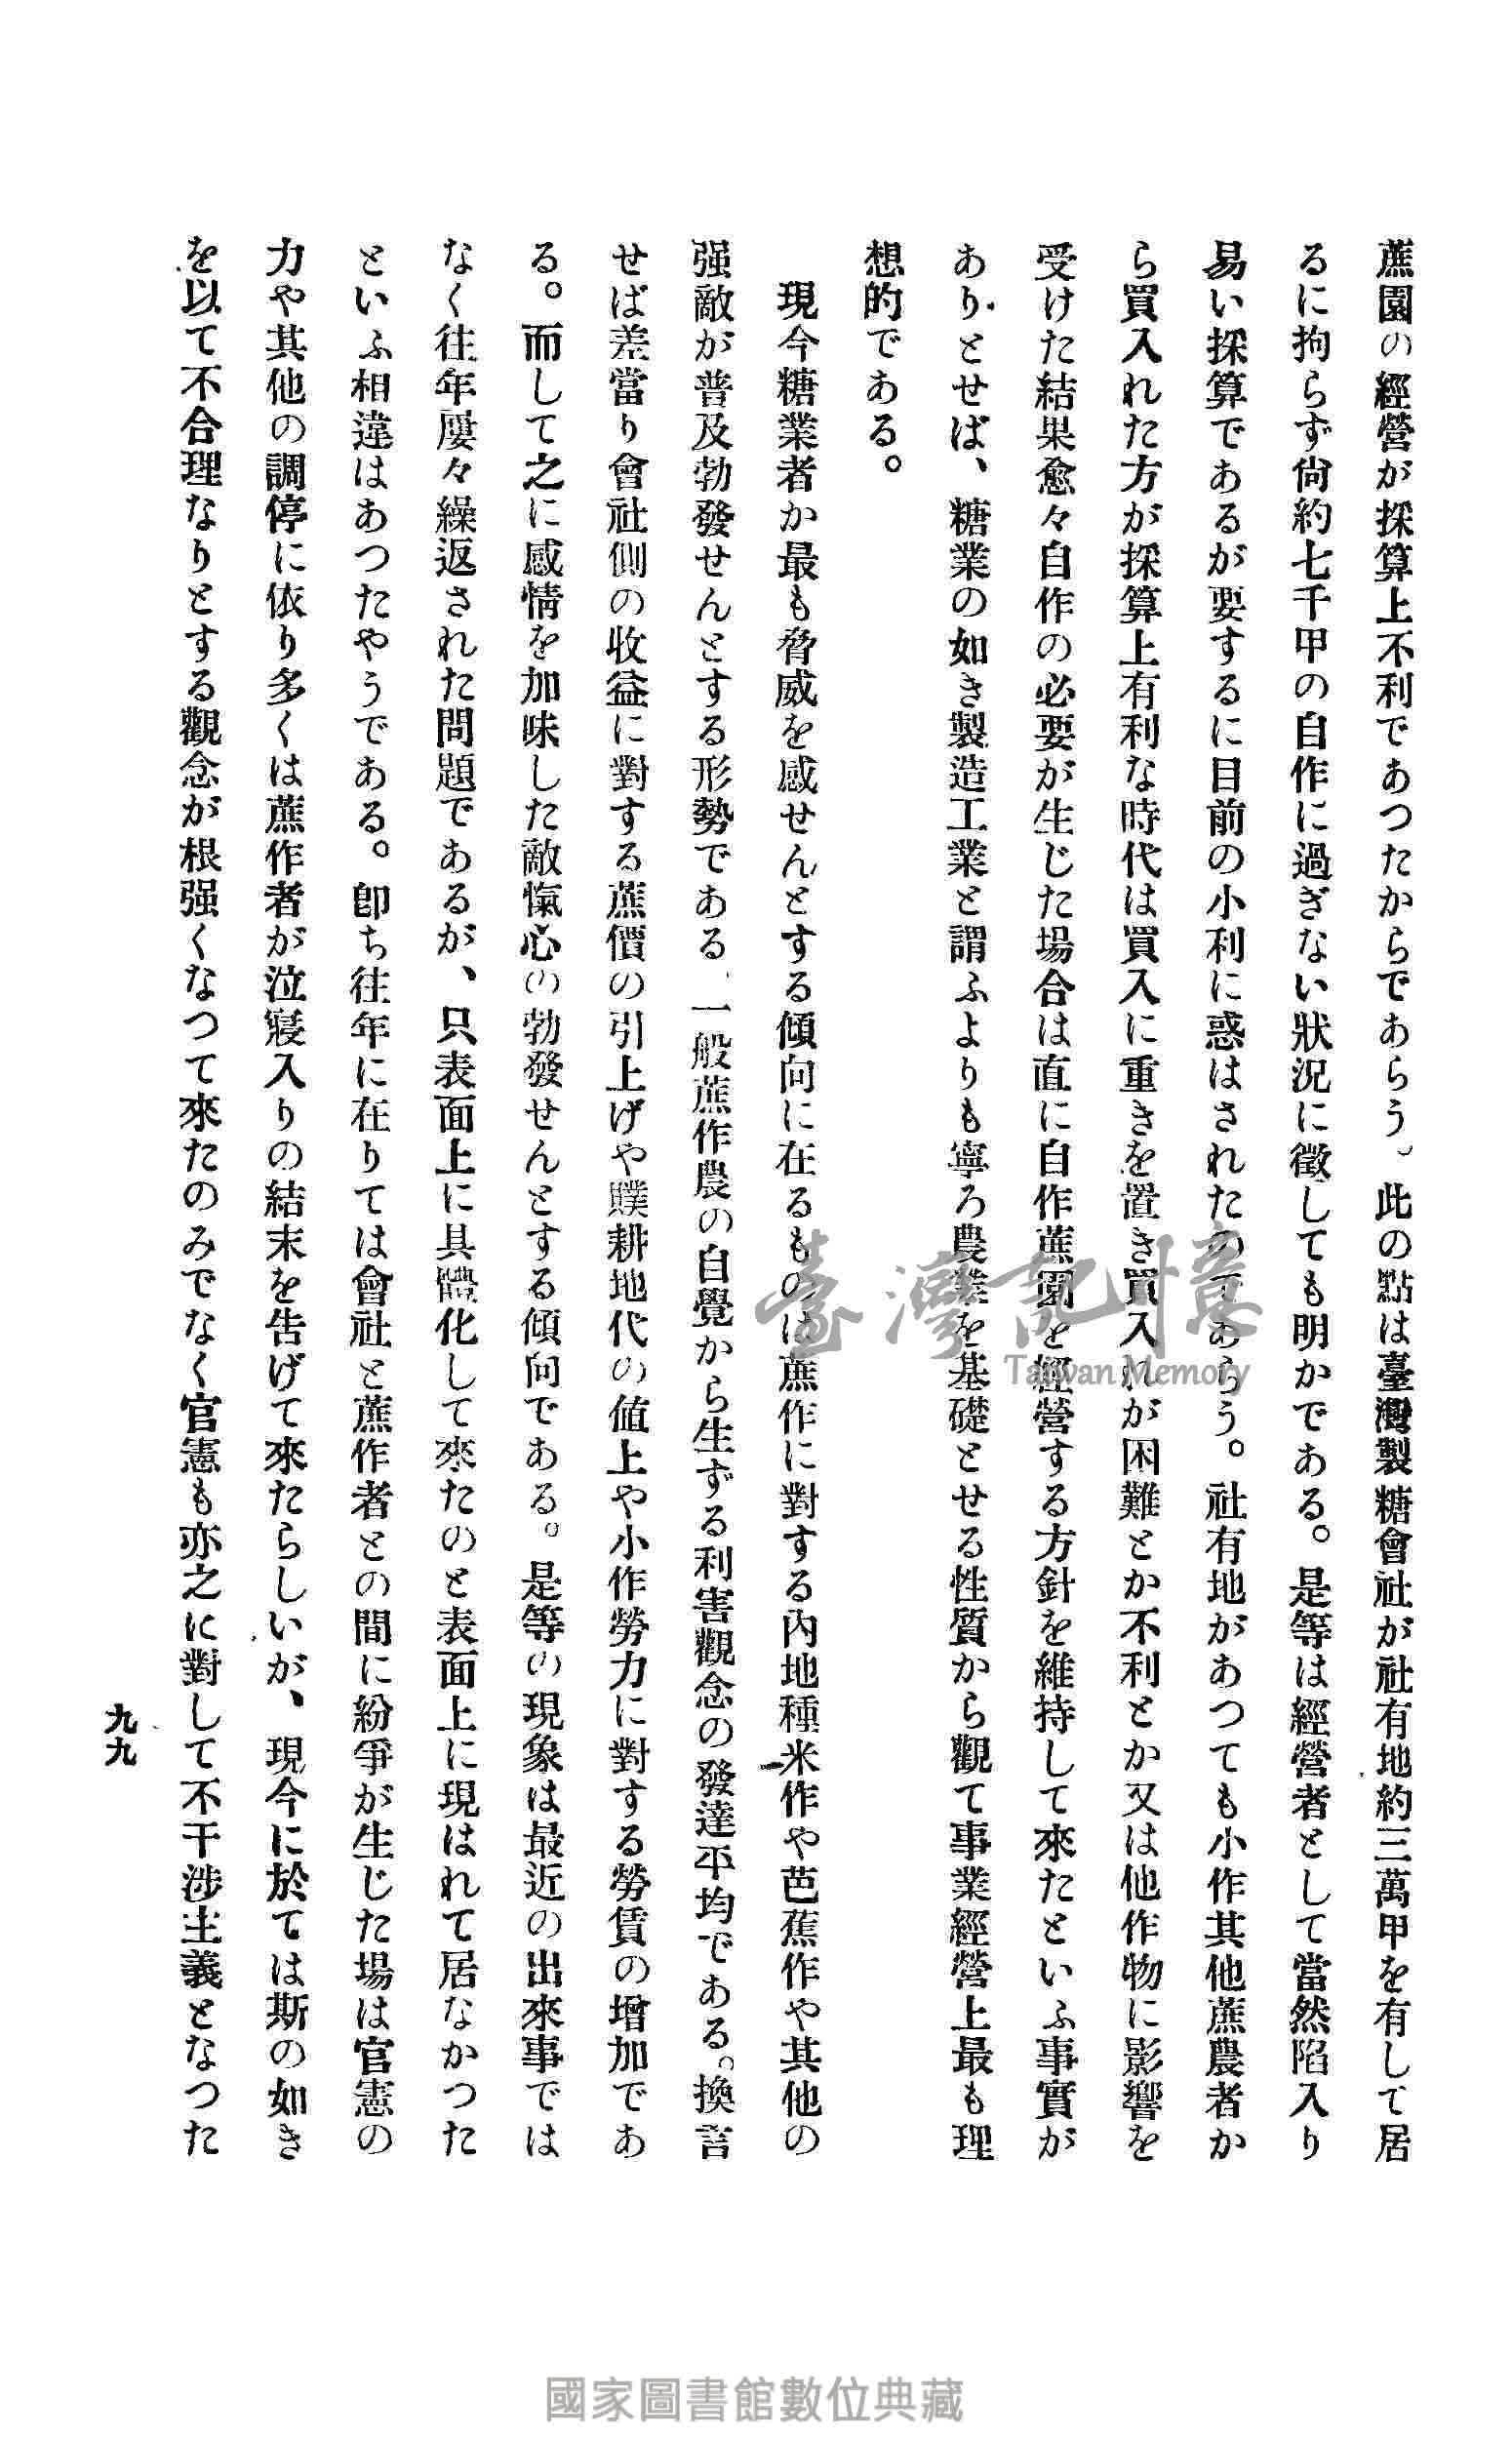 蔗園の經營が採算上不利であつたからであらう、此の點は臺灣製糖會社が社有地約三萬甲を有して居
るに拘らず尙約七千甲の自作に過ぎない狀況に徵しても明かである。是等は經營者として當然陷入り
易い採算であるが要するに目前の小利に惑はされたのであらう。社有地があつても小作其他蔗農者か
ら買入れた方が採算上有利な時代は買入に重きを置き買入れが困難とか不利とか又は他作物に影響を
受けた結果愈々自作の必要が生じた場合は直に自作蔗園を經營する方針を維持して來たといふ事實が
ありとせば、糖業の如き製造工業と謂ふよりも寧ろ農業を基礎とせる性質から觀て事業經營上最も理
想的である。
現今糖業者か最も脅威を感せんとする傾向に在るものは蔗作に對する內地種米作や芭蕉作や其他の
强敵が普及勃發せんとする形勢である、一般蔗作農の自覺から生ずる利害觀念の發達平均である。換言
せば差當り會社側の收益に對する蔗價の引上げや贌耕地代の値上や小作勞力に對する勞賃の增加であ
る。而して之に感情を加味した敵愾心の勃發せんとする傾向である。是等の現象は最近の出來事では
なく往年屢々繰返された問題であるが、只表面上に具體化して來たのと表面上に現はれて居なかつた
といふ相違はあつたやうである。卽ち往年に在りては會社と蔗作者との間に紛爭が生じた場は官憲の
力や其他の調停に依り多くは蔗作者が泣寢入りの結末を吿げて來たらしいが、現今に於ては斯の如き
を以て不合理なりとする觀念が根强くなつて來たのみでなく官憲も亦之に對して不干涉主義となつた
九九
臺灣記憶
Taiwan Memory
國家圖書館數位典藏